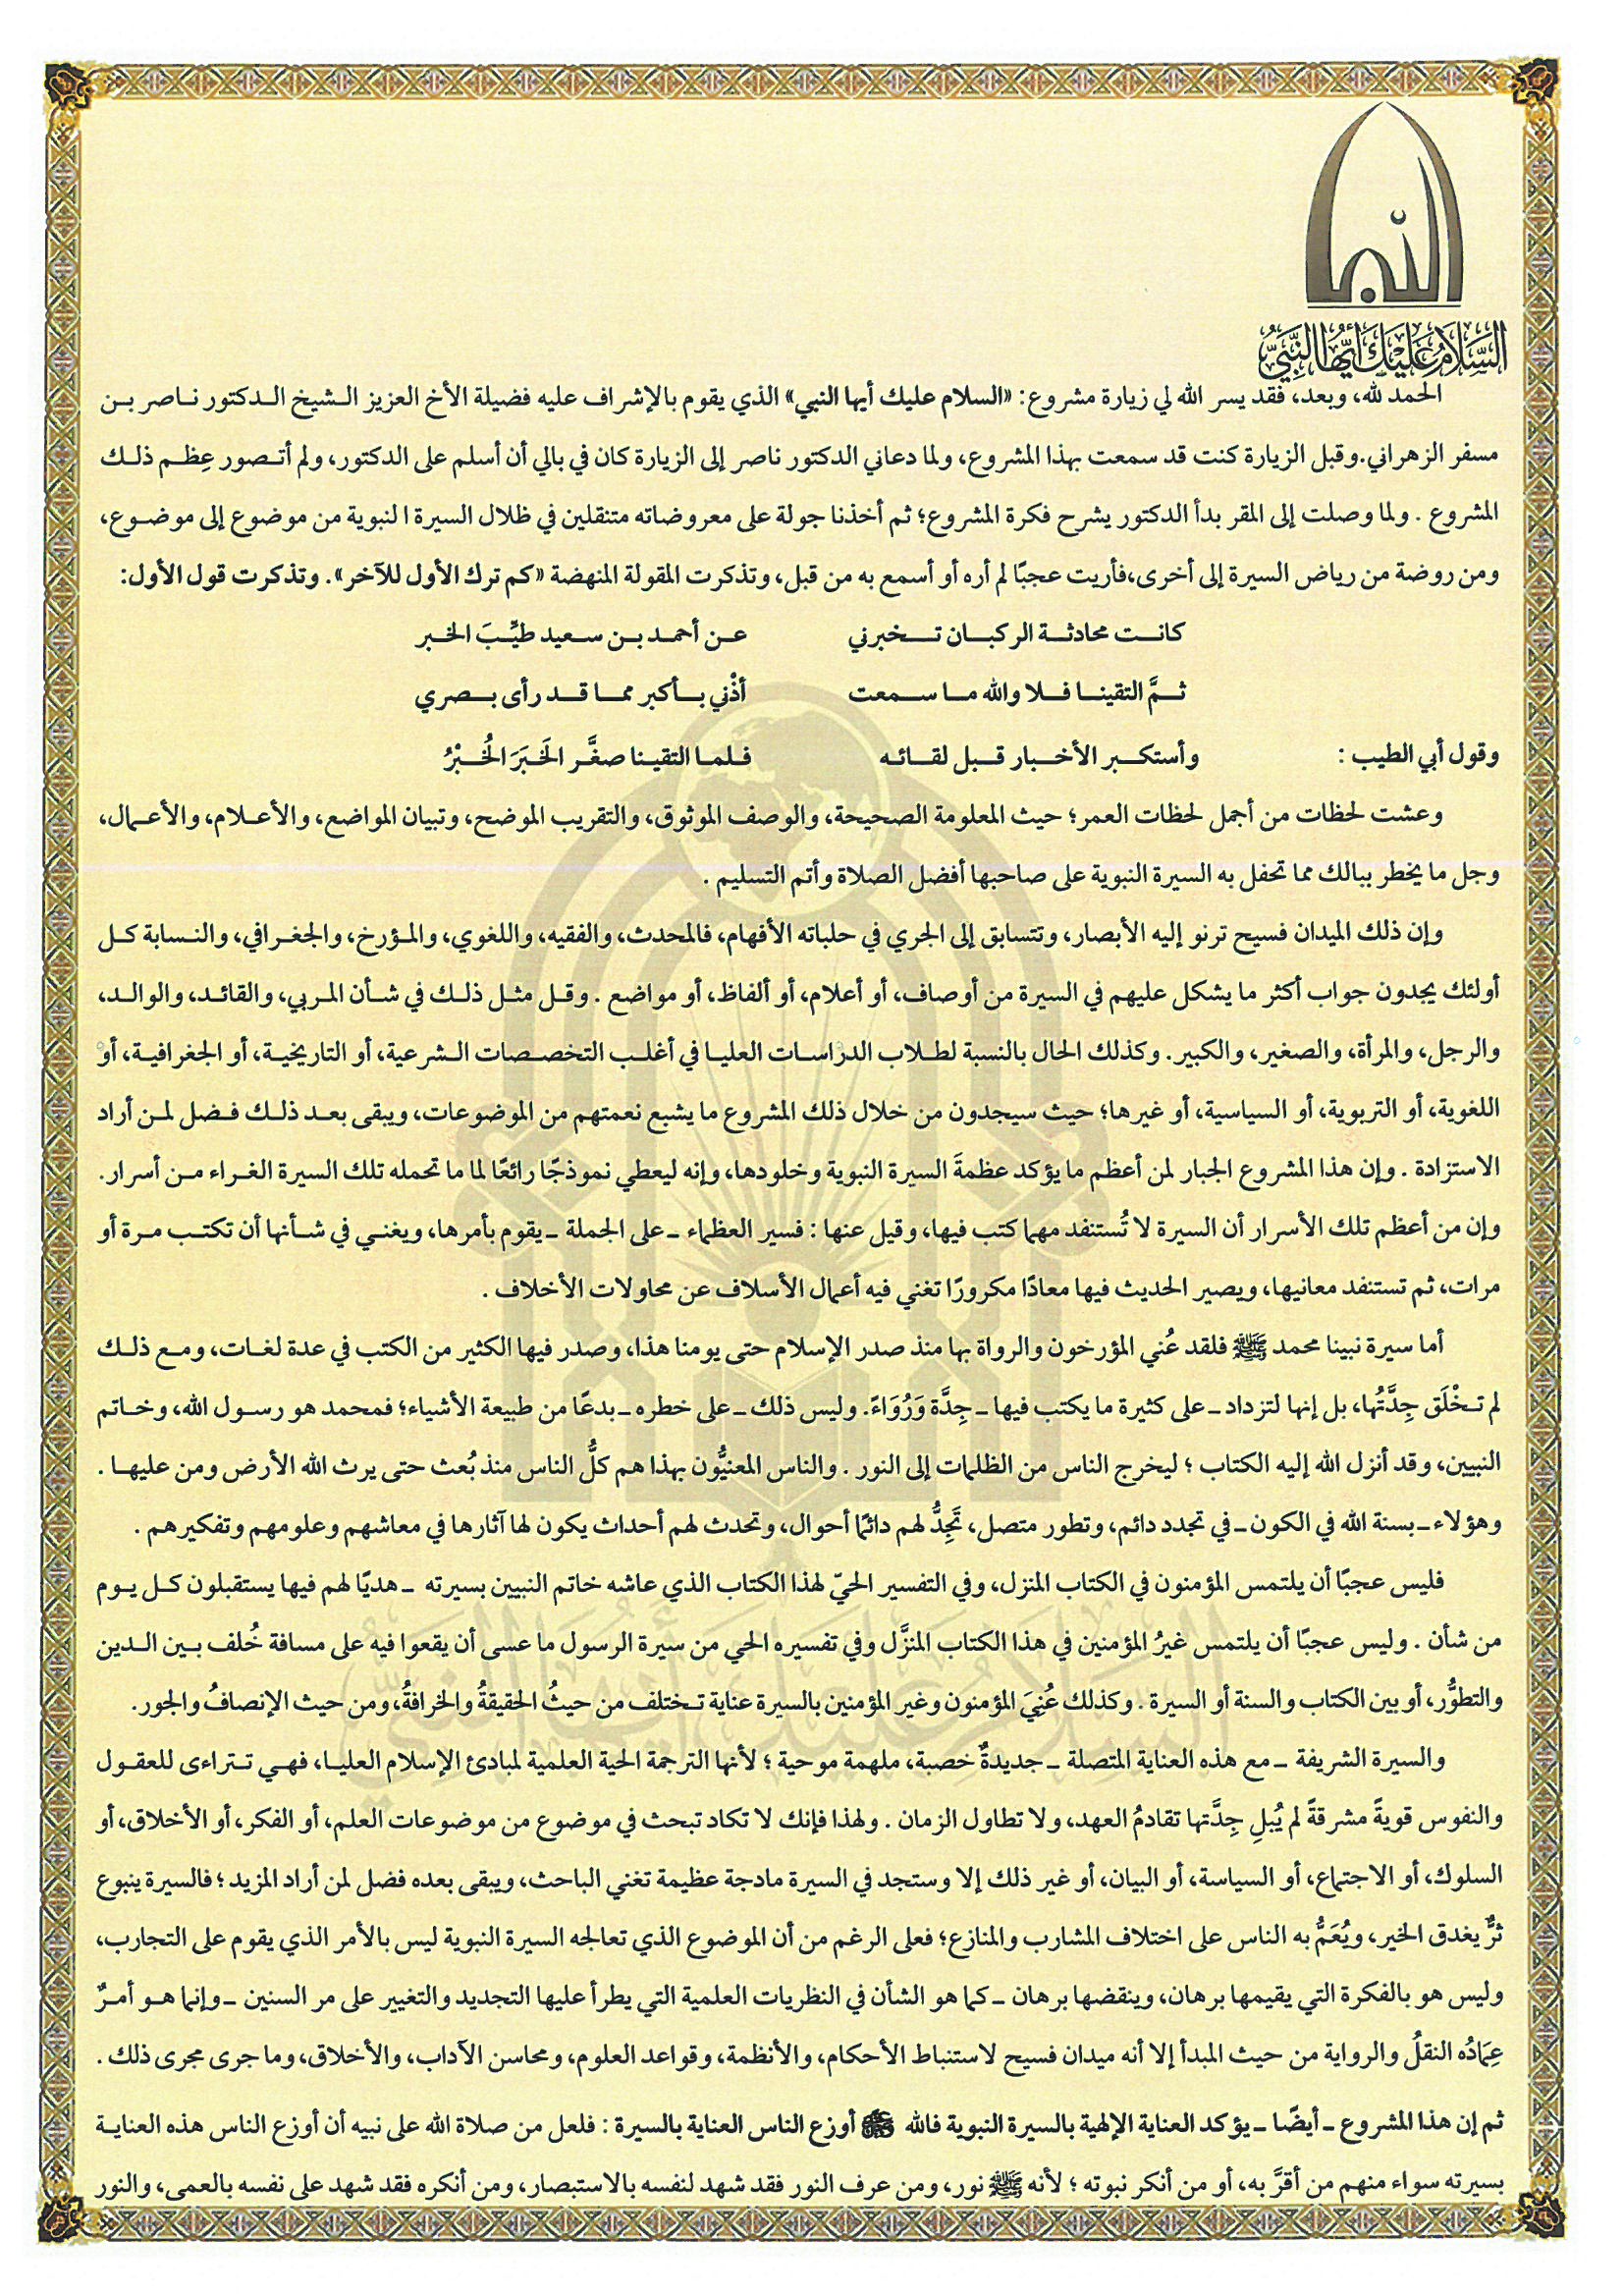 النبأ
السلام عليك أيها النبي
الحمد لله، وبعد، فقد يسر الله لي زيارة مشروع: «السلام عليك أيها النبي» الذي يقوم بالإشراف عليه فضيلة الأخ العزيز الشيخ الدكتور ناصر بن
مسفر الزهراني.وقبل الزيارة كنت قد سمعت بهذا المشروع، ولما دعاني الدكتور ناصر إلى الزيارة كان في بالي أن أسلم على الدكتور، ولم أتصور عِظم ذلك
المشروع . ولما وصلت إلى المقر بدأ الدكتور يشرح فكرة المشروع؛ ثم أخذنا جولة على معروضاته متنقلين في ظلال السيرة النبوية من موضوع إلى موضوع،
ومن روضة من رياض السيرة إلى أخرى،فأريت عجبًا لم أره أو أسمع به من قبل، وتذكرت المقولة المنهضة «كم ترك الأول للآخر». وتذكرت قول الأول:
كانت محادثة الركبان تخبرني عن أحمد بن سعيد طيِّبَ الخبر
ثمَّ التقينا فلا والله ما سمعت أذْني بأكبر مما قد رأى بصري
وقول أبي الطيب : وأستكبر الأخبار قبل لقائه فلما التقينا صغَّر الخَبَرَ الخُبْرُ
وعشت لحظات من أجمل لحظات العمر؛ حيث المعلومة الصحيحة، والوصف الموثوق، والتقريب الموضح، وتبيان المواضع، والأعلام، والأعمال،
وجل ما يخطر ببالك مما تحفل به السيرة النبوية على صاحبها أفضل الصلاة وأتم التسليم .
وإن ذلك الميدان فسيح ترنو إليه الأبصار، وتتسابق إلى الجري في حلباته الأفهام، فالمحدث، والفقيه، واللغوي، والمؤرخ، والجغرافي، والنسابة كل
أولئك يجدون جواب أكثر ما يشكل عليهم في السيرة من أوصاف، أو أعلام، أو ألفاظ، أو مواضع . وقل مثل ذلك في شأن المربي، والقائد، والوالد،
والرجل، والمرأة، والصغير، والكبير. وكذلك الحال بالنسبة لطلاب الدراسات العليا في أغلب التخصصات الشرعية، أو التاريخية، أو الجغرافية، أو
اللغوية، أو التربوية، أو السياسية، أو غيرها؛ حيث سيجدون من خلال ذلك المشروع ما يشبع نعمتهم من الموضوعات، ويبقى بعد ذلك فضل لمن أراد
الاستزادة . وإن هذا المشروع الجبار لمن أعظم ما يؤكد عظمةَ السيرة النبوية وخلودها، وإنه ليعطي نموذجًا رائعًا لما ما تحمله تلك السيرة الغراء من أسرار.
وإن من أعظم تلك الأسرار أن السيرة لا تُستنفد مهما كتب فيها، وقيل عنها : فسير العظماء ـ على الجملة ـ يقوم بأمرها، ويغني في شأنها أن تكتب مرة أو
مرات، ثم تستنفد معانيها، ويصير الحديث فيها معادًا مكرورًا تغني فيه أعمال الأسلاف عن محاولات الأخلاف .
أما سيرة نبينا محمد ﷺ فلقد عُني المؤرخون والرواة بها منذ صدر الإسلام حتى يومنا هذا، وصدر فيها الكثير من الكتب في عدة لغات، ومع ذلك
لم تخْلَق جِدَّتُها، بل إنها لتزداد ـ على كثيرة ما يكتب فيها ـ جِدَّة وَرُوَاءً. وليس ذلك ـ على خطره ـ بدعًا من طبيعة الأشياء؛ فمحمد هو رسول الله، وخاتم
النبيين، وقد أنزل الله إليه الكتاب ؛ ليخرج الناس من الظلمات إلى النور . والناس المعنيُّون بهذا هم كلُّ الناس منذ بُعث حتى يرث الله الأرض ومن عليها .
وهؤلاء ـ بسنة الله في الكون ـ في تجدد دائم، وتطور متصل، تَجِدُّ لهم دائمًا أحوال، وتحدث لهم أحداث يكون لها آثارها في معاشهم وعلومهم وتفكيرهم .
فليس عجبًا أن يلتمس المؤمنون في الكتاب المنزل، وفي التفسير الحيّ لهذا الكتاب الذي عاشه خاتم النبيين بسيرته ـ هديًا لهم فيها يستقبلون كل يوم
من شأن . وليس عجبًا أن يلتمس غيرُ المؤمنين في هذا الكتاب المنزَّل وفي تفسيره الحي من سيرة الرسول ما عسى أن يقعوا فيه على مسافة خُلف بين الدين
والتطوُّر، أو بين الكتاب والسنة أو السيرة . وكذلك عُنِيَ المؤمنون وغير المؤمنين بالسيرة عناية تختلف من حيثُ الحقيقةُ والخرافةُ، ومن حيث الإنصافُ والجور.
والسيرة الشريفة ـ مع هذه العناية المتصلة ـ جديدةٌ خصبة، ملهمة موحية ؛ لأنها الترجمة الحية العلمية لمبادئ الإسلام العليا، فهي تتراءى للعقول
والنفوس قويةً مشرقةً لم يُبلِ جِدَّتها تقادمُ العهد، ولا تطاول الزمان . ولهذا فإنك لا تكاد تبحث في موضوع من موضوعات العلم، أو الفكر، أو الأخلاق، أو
السلوك، أو الاجتماع، أو السياسة، أو البيان، أو غير ذلك إلا وستجد في السيرة مادجة عظيمة تغني الباحث، ويبقى بعده فضل لمن أراد المزيد ؛ فالسيرة ينبوع
ثرٌّ يغدق الخير، ويُعَمُّ به الناس على اختلاف المشارب والمنازع؛ فعلى الرغم من أن الموضوع الذي تعالجه السيرة النبوية ليس بالأمر الذي يقوم على التجارب،
وليس هو بالفكرة التي يقيمها برهان، وينقضها برهان ـ كما هو الشأن في النظريات العلمية التي يطرأ عليها التجديد والتغيير على مر السنين ـ وإنما هو أمرٌ
عِمَادُه النقلُ والرواية من حيث المبدأ إلا أنه ميدان فسيح لاستنباط الأحكام، والأنظمة، وقواعد العلوم، ومحاسن الآداب، والأخلاق، وما جرى مجرى ذلك .
ثم إن هذا المشروع ـ أيضًا ـ يؤكد العناية الإلهية بالسيرة النبوية فالله أوزع الناس العناية بالسيرة : فلعل من صلاة الله على نبيه أن أوزع الناس هذه العناية
بسيرته سواء منهم من أقرَّ به، أو من أنكر نبوته ؛ لأنه ﷺ نور، ومن عرف النور فقد شهد لنفسه بالاستبصار، ومن أنكره فقد شهد على نفسه بالعمى، والنور